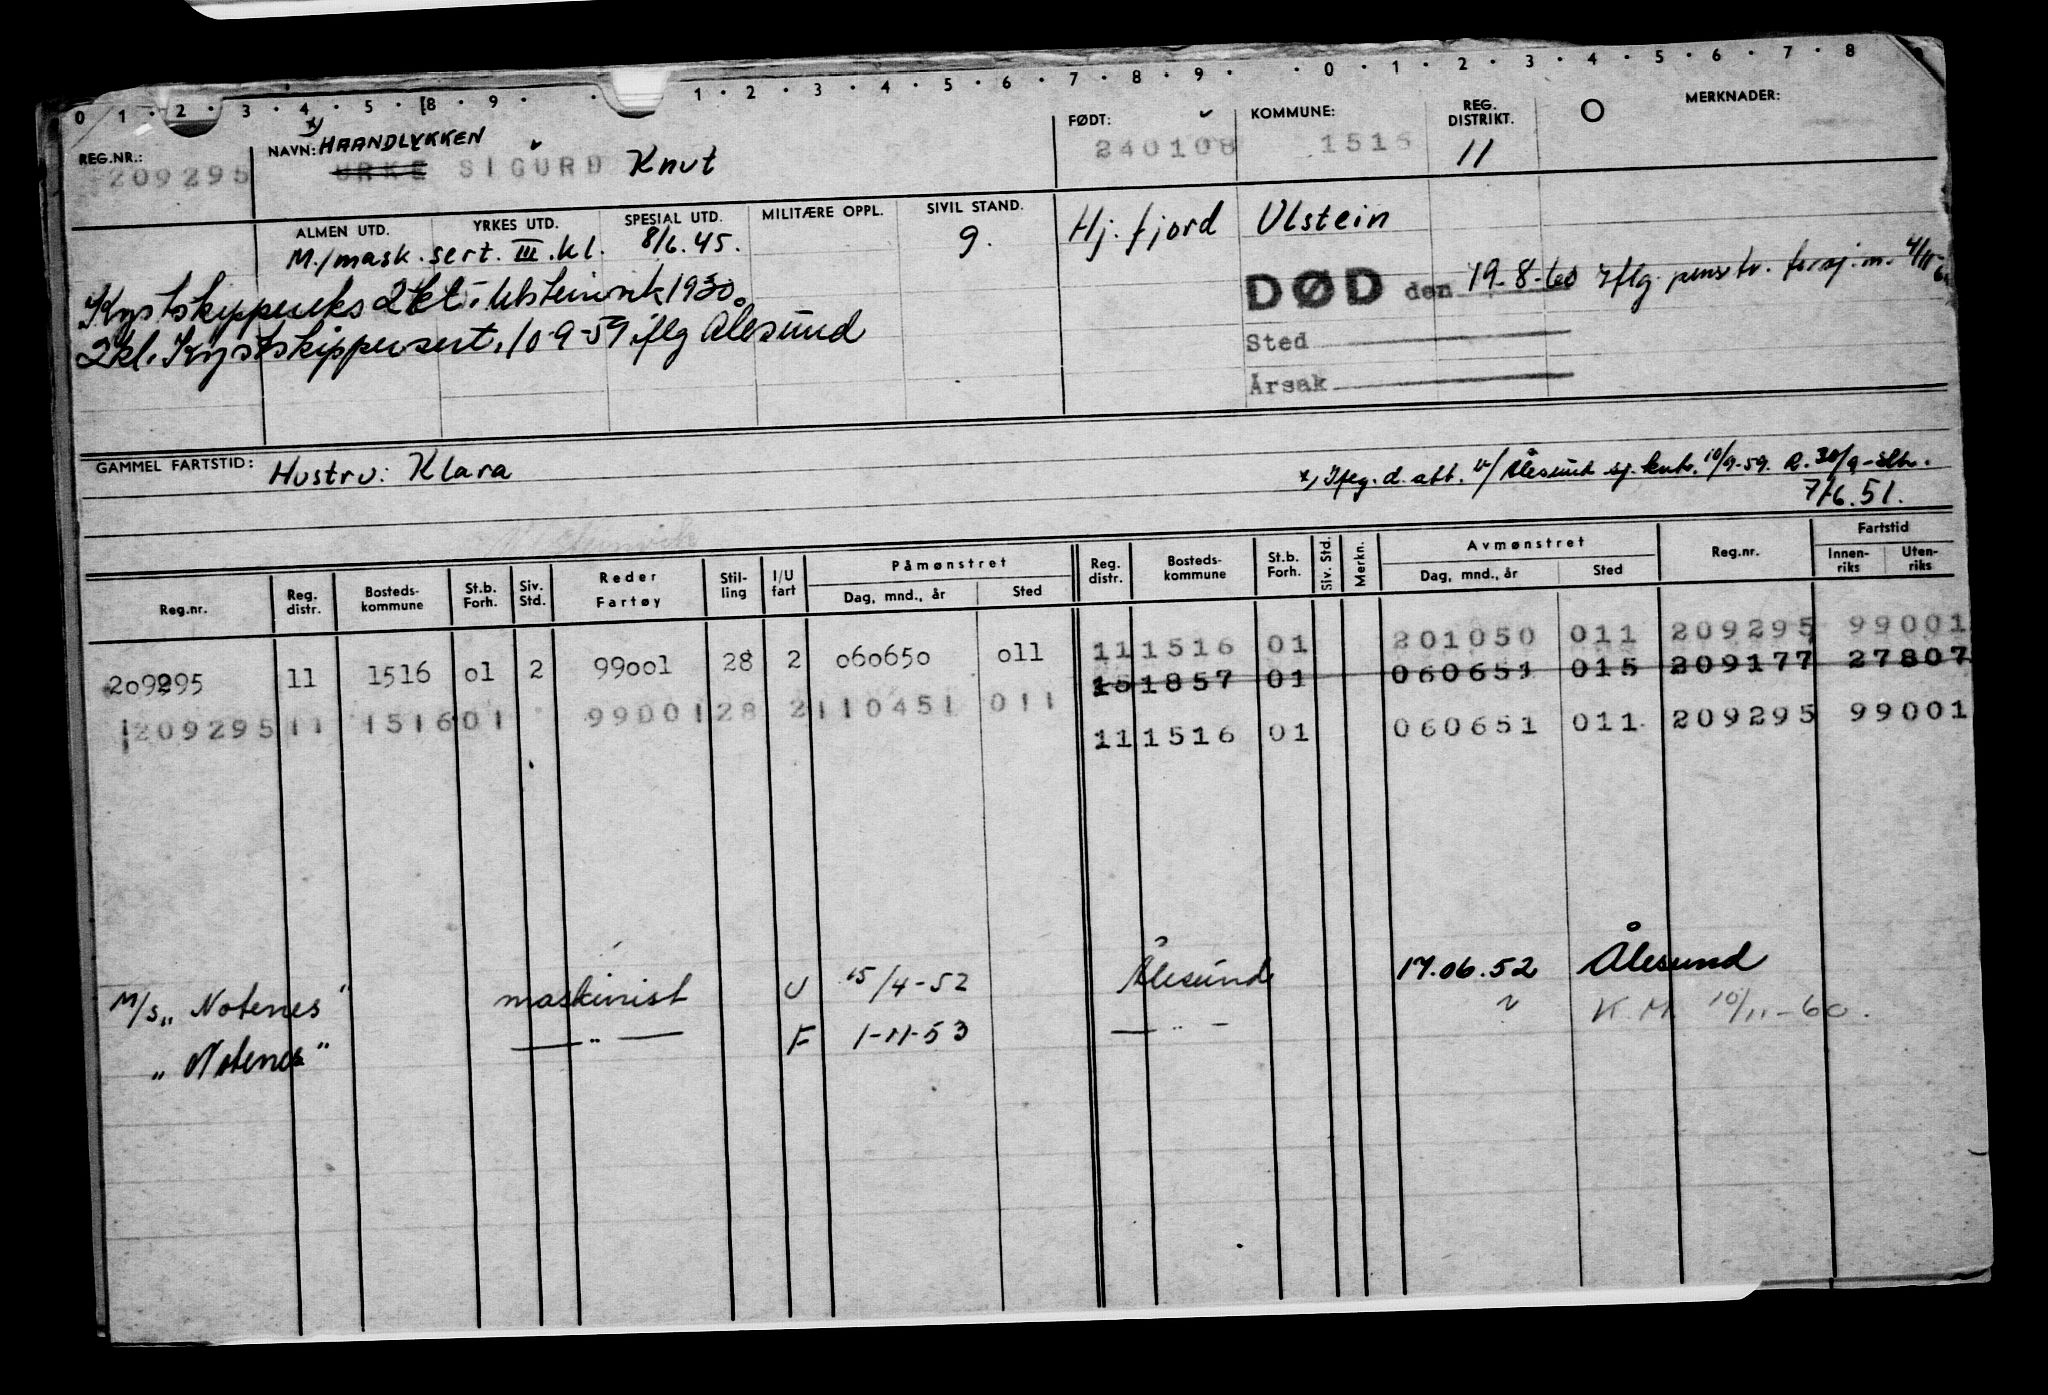 0 1 2 3 4 5 8 9 1 2 3 4 5 6 7 8 9 0 1 2 3 4 5 6 7 8
REG.NR.: 209295
NAVN: x) HAANDLYKKEN
URKE SIGURD Knut
FØDT: 240108
KOMMUNE: 1516
REG. DISTRIKT. 11
O
MERKNADER:
ALMEN UTD. YRKES UTD. SPESIAL UTD. MILITÆRE OPPL. SIVIL STAND.
M./mask. sert. III. kl. 8/6.45. g. Hj. fjord Ulstein
Kystskippereks 2kl. i Ulsteinvik 1930.
2kl. Kystskippersert. 10-9-59 iflg Ålesund
DØD den 19-8-60 iflg.
Sted
Årsak
GAMMEL FARTSTID: Hustru: Klara
x) Ifлg. d. att. Ålesund sj. 10/9-59.
7/6.51.
Reg.nr. Reg. distr. Bosteds-kommune St.b. Forh. Siv. Std. Reder Fartøy Stil-ling I/U fart Påmønstret Dag, mnd., år Sted Reg. distr. Bosteds-kommune St.b. Forh. Siv. Std. Merkn. Avmønstret Dag, mnd., år Sted Reg.nr. Fartstid Innen-riks Uten-riks
209295 11 1516 01 2 99001 28 2 060650 011 11 1516 01 201050 011 209295 99001
15 1857 01 060651 015 209177 27807
209295 11 1516 01 99001 28 2 110451 011 11 1516 01 060651 011 209295 99001
M/s „Notenes" maskinist U 15/4-52 Ålesund 17.06.52 Ålesund
„Notenes" — " — F 1-11-53 — " — K.M. 10/11-60.